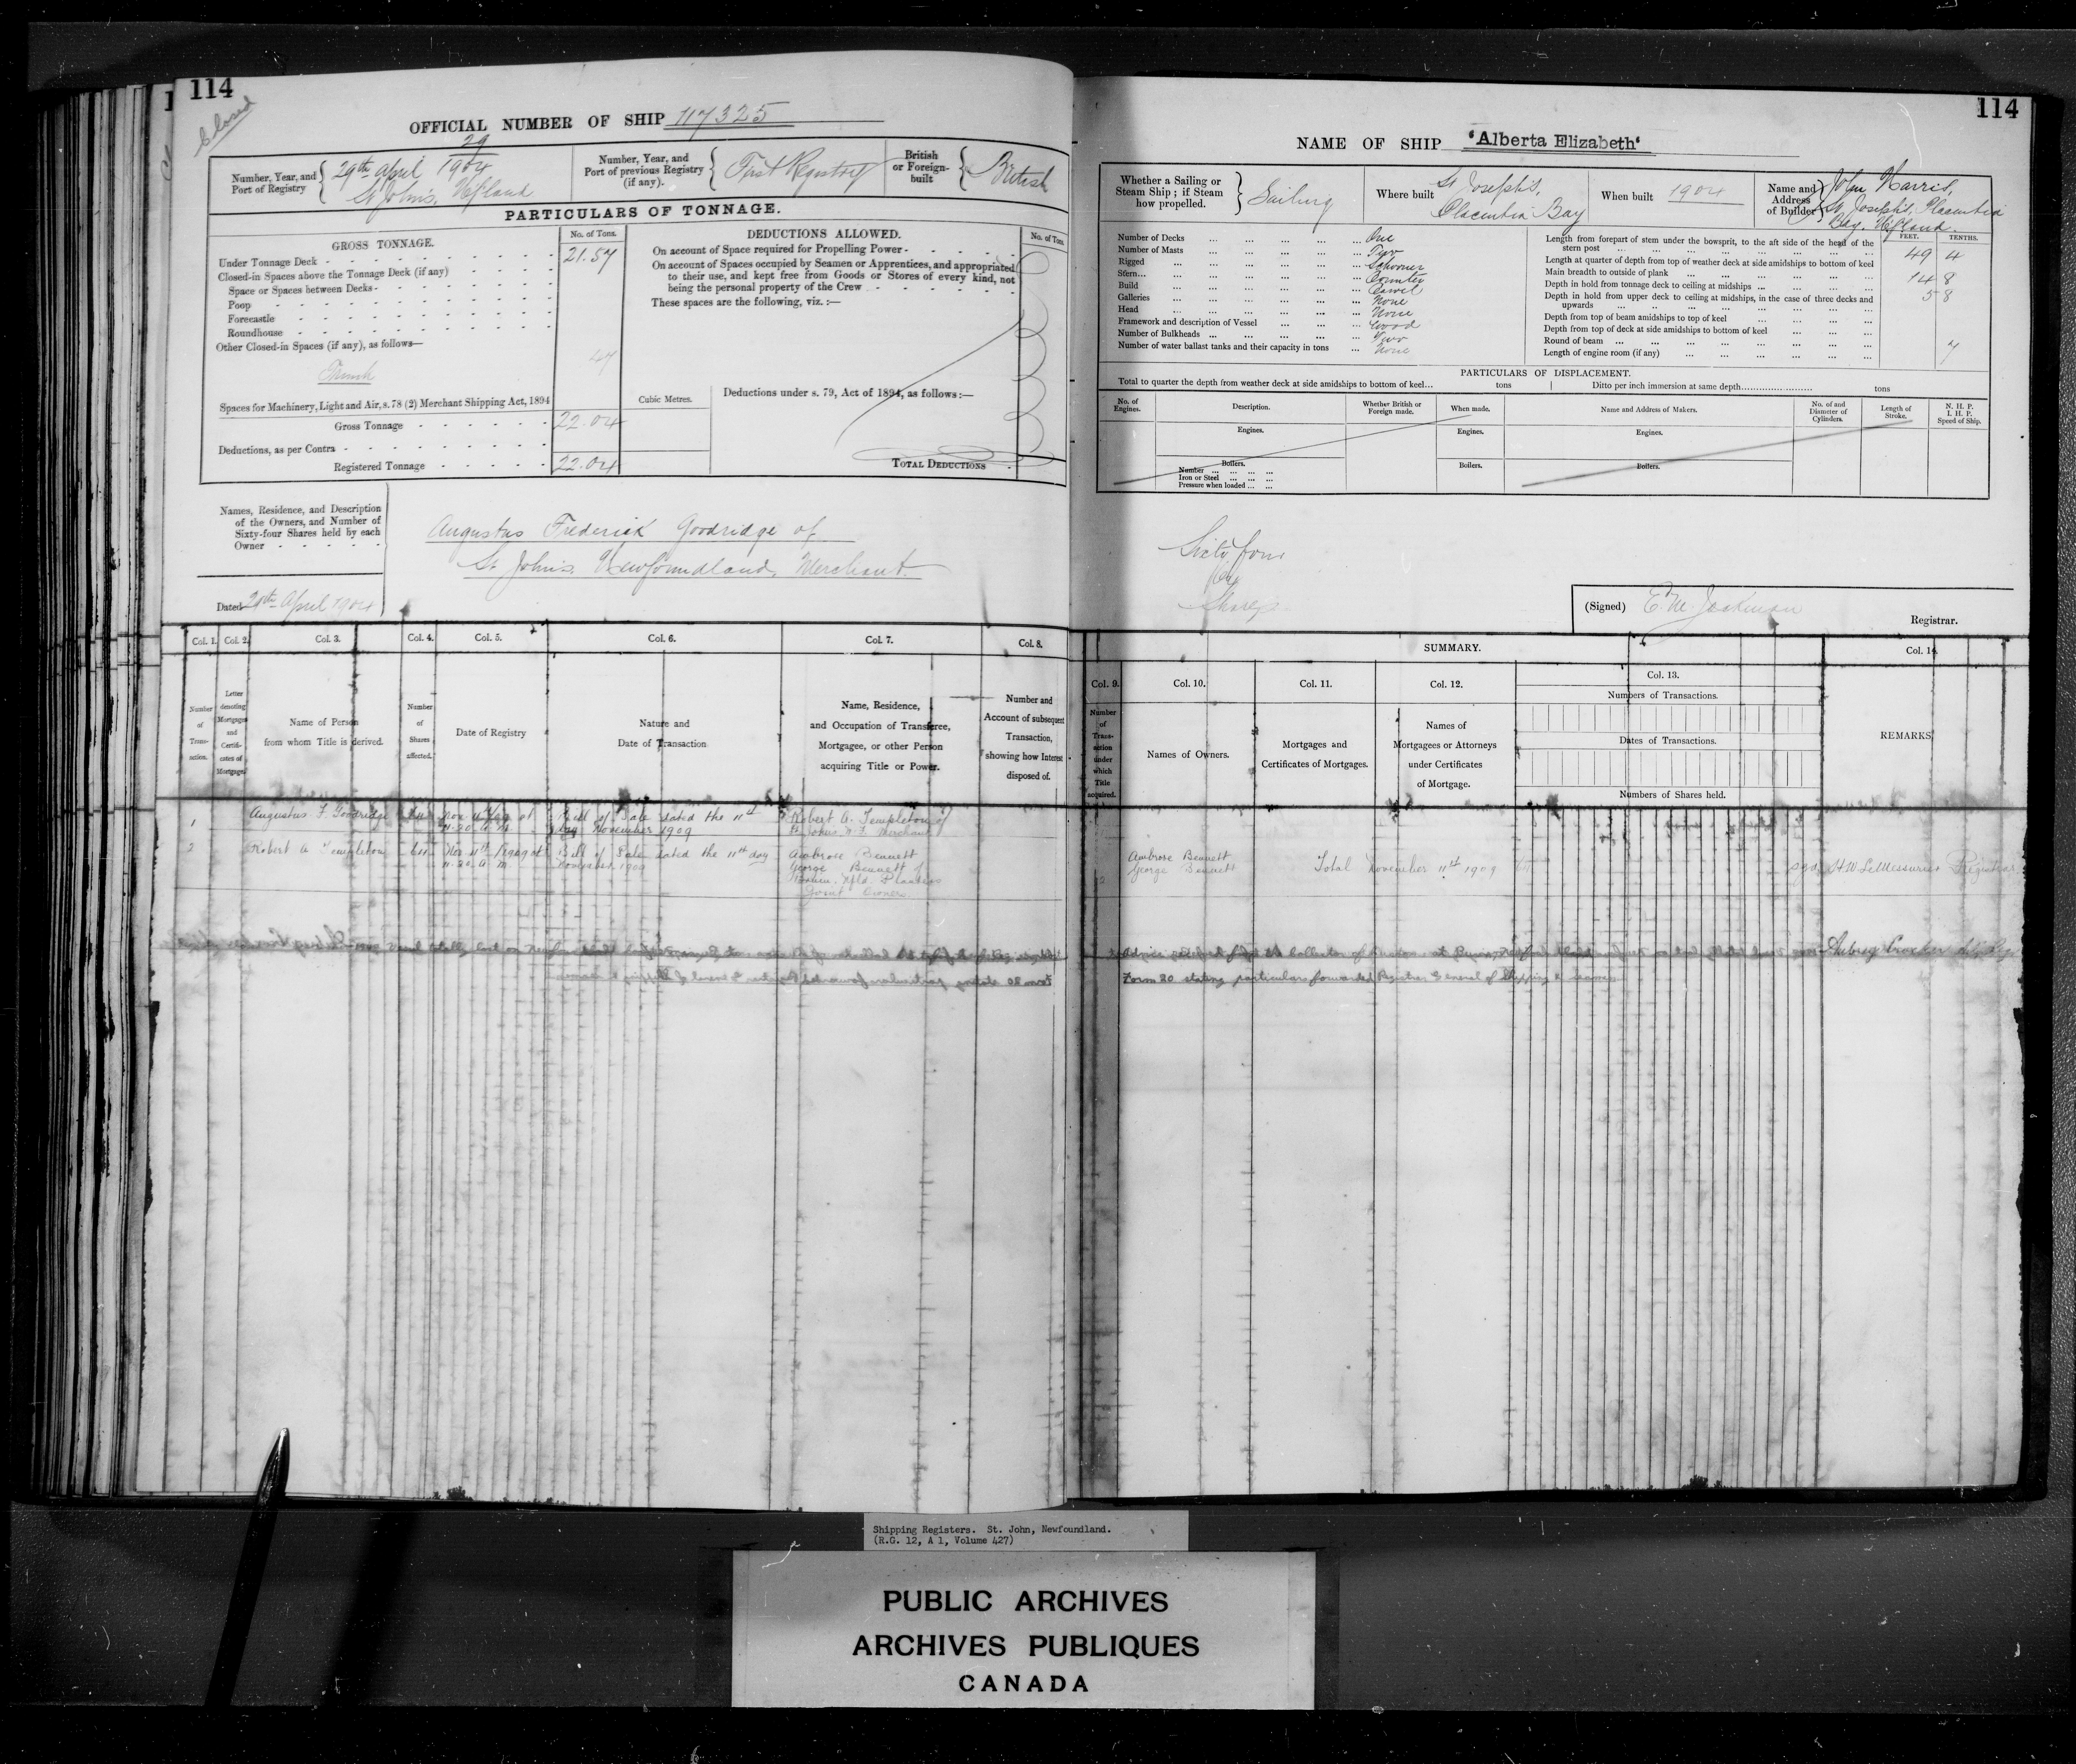 114
Closed
OFFICIAL NUMBER OF SHIP 117325
29
Number, Year, and Port of Registry { 29th April 1904 St John's, Nfland
Number, Year, and Port of previous Registry (if any). { First Registry
British or Foreign-built { British
PARTICULARS OF TONNAGE.
GROSS TONNAGE. No. of Tons.
Under Tonnage Deck 21.57
Closed-in Spaces above the Tonnage Deck (if any)
Space or Spaces between Decks
Poop
Forecastle
Roundhouse
Other Closed-in Spaces (if any), as follows—
Trunk 47
Spaces for Machinery, Light and Air, s. 78 (2) Merchant Shipping Act, 1894
Gross Tonnage 22.04
Deductions, as per Contra
Registered Tonnage 22.04
DEDUCTIONS ALLOWED. No. of Tons.
On account of Space required for Propelling Power
On account of Spaces occupied by Seamen or Apprentices, and appropriated
to their use, and kept free from Goods or Stores of every kind, not
being the personal property of the Crew
These spaces are the following, viz. :—
Cubic Metres.
Deductions under s. 79, Act of 1894, as follows :—
TOTAL DEDUCTIONS
Names, Residence, and Description
of the Owners, and Number of
Sixty-four Shares held by each
Owner
Augustus Frederick Goodridge of
St John's Newfoundland, Merchant.
Dated 29th April 1904
Col. 1. Col. 2. Col. 3. Col. 4. Col. 5. Col. 6. Col. 7. Col. 8.
Number of Trans-action.
Letter denoting Mortgages and Certifi-cates of Mortgages
Name of Person from whom Title is derived.
Number of Shares affected.
Date of Registry
Nature and Date of Transaction
Name, Residence, and Occupation of Transferee, Mortgagee, or other Person acquiring Title or Power.
Number and Account of subsequent Transaction, showing how Interest disposed of.
1 Augustus F. Goodridge Nov. at Bill of Sale dated the 11th Robert A. Templeton of
11.20 A.M. day November 1909 St. Johns N.F. Merchant
2 Robert A Templeton 64 Nov 11th 1909 at Bill of Sale dated the 11th day Ambrose Bennett
11.20 A.M. November 1909 George Bennett of
Nfld. Planters
Joint Owners
114
NAME OF SHIP "Alberta Elizabeth"
Whether a Sailing or Steam Ship ; if Steam how propelled. } Sailing
Where built St Joseph's, Placentia Bay
When built 1904
Name and Address of Builder } John Harris, St Joseph's, Placentia Bay, Nfland.
Number of Decks ... One
Number of Masts ... Two
Rigged ... Schooner
Stern ... Counter
Build ... Carvel
Galleries ... None
Head ... None
Framework and description of Vessel ... Wood
Number of Bulkheads ... Two
Number of water ballast tanks and their capacity in tons ... None
FEET. TENTHS.
Length from forepart of stem under the bowsprit, to the aft side of the head of the
stern post 49 4
Length at quarter of depth from top of weather deck at side amidships to bottom of keel
Main breadth to outside of plank 14 8
Depth in hold from tonnage deck to ceiling at midships ... 5 8
Depth in hold from upper deck to ceiling at midships, in the case of three decks and
upwards
Depth from top of beam amidships to top of keel
Depth from top of deck at side amidships to bottom of keel
Round of beam 7
Length of engine room (if any)
PARTICULARS OF DISPLACEMENT.
Total to quarter the depth from weather deck at side amidships to bottom of keel... tons | Ditto per inch immersion at same depth........ tons
No. of Engines. Description. Whether British or Foreign made. When made. Name and Address of Makers. No. of and Diameter of Cylinders. Length of Stroke. N. H. P. I. H. P. Speed of Ship.
Engines. Engines. Engines.
Boilers. Boilers. Boilers.
Number
Iron or Steel
Pressure when loaded
Sixty four
64
Shares
(Signed) E. M. Jackman
Registrar.
SUMMARY.
Col. 9. Col. 10. Col. 11. Col. 12. Col. 13. Col. 14.
Number of Trans-action under which Title acquired.
Names of Owners.
Mortgages and Certificates of Mortgages.
Names of Mortgagees or Attorneys under Certificates of Mortgage.
Numbers of Transactions.
Dates of Transactions.
Numbers of Shares held.
REMARKS
Ambrose Bennett
George Bennett Total November 11th 1909 64 sgd H.W. LeMessurier Registrar
Form 20 stating particulars forwarded Registrar General of Shipping &
Shipping Registers. St. John, Newfoundland.
(R.G. 12, A 1, Volume 427)
PUBLIC ARCHIVES
ARCHIVES PUBLIQUES
CANADA